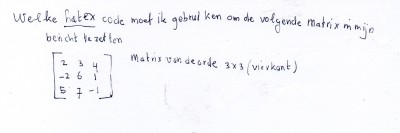 Welke LaTEX code moet ik gebruiken om de volgende Matrix in mijn
bericht te zetten
2 3 4 Matrix van de orde 3x3 (vierkant)
-2 6 1
5 7 -1